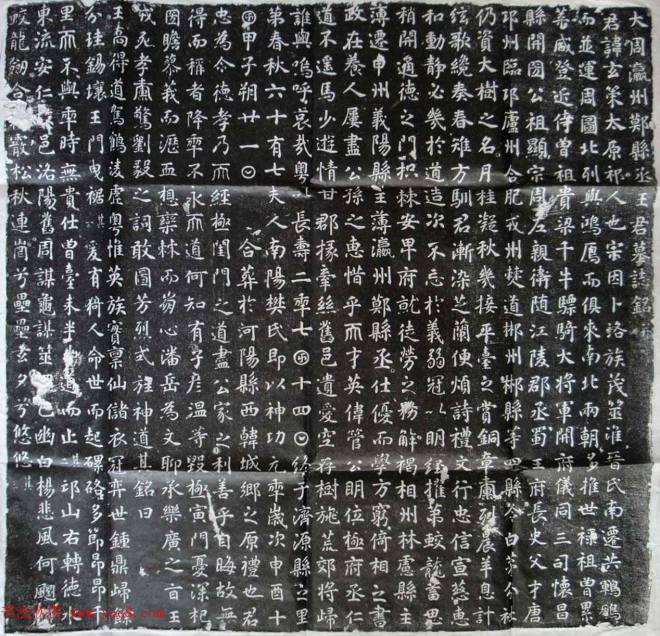 大周瀛州鄚縣丞王君墓誌銘并
君諱玄策太原祁人也宗因卜洛族茂筮淮晉氏南遷共鸚鵡
而並運周圖北列與鴻鴈而俱來南北兩朝多推世祿祖曾累
葉咸登近侍曾祖貴梁千牛驃騎大將軍開府儀同三司懷昌
縣開國公祖顯宗周左親衛隨江陵郡丞蜀王府長史父才唐
邛州臨邛廬州合肥戎州僰道郴州郴縣等四縣令白茅分
仍資大樹之名月桂凝秋幾接平臺之賞銅章肅列晨羊息計
絃歌纔奏春雉方馴君漸染芝蘭便煩詩禮文行忠信宣慈惠
和動靜必幾於道造次不忘於義弱冠以明經推第蛟龍蓄思
稍開適德之門枳棘安卑府就徒勞之務解褐相州林慮縣主
薄遷申州義陽縣主薄瀛州鄚縣丞仕優而學方窮倚相之書
政在養人屢盡公孫之惠惜乎而才英偉管公明位極府丞仁
道不遥馬少遊情甘郡掾牽絲舊邑遺愛空存樹旐荒郊將歸
誰與嗚呼哀哉粤以長壽二年七月十四日終于濟源縣之里
第春秋六十有七夫人南陽樊氏即以神功元年歲次申酉十
月甲子朔廿一日 合葬於河陽縣西韓城鄉之原禮也君
忠為令德孝乃而經極閨門之道盡公家之利善乎自晦故無
得而稱者降年不永而道何知有子彦温等毀極寅門憂深杞
國瞻蓼義而灑血想欒林而茍心潘岳為文聊承樂廣之言王
戎死孝肅驚劉毅之詞敢圖芳烈式旌神道其銘曰
王高得道駕鶴淩虚粤惟英族寶稟仙儲衣冠弈世鍾鼎歸
分珪錫壤王門曳裾其一爰有猗人命世而起磥硌多節昂昂
里而不與年時無貴仕曾臺未半道而止其二邙山右轉德水
東流安仁邑洛陽舊周謀龜謀筮幽白楊悲風何颼
蛟龍劒合散松秋連崗兮壘壘玄夕兮悠悠其三
书法欣赏 www.yac8.com